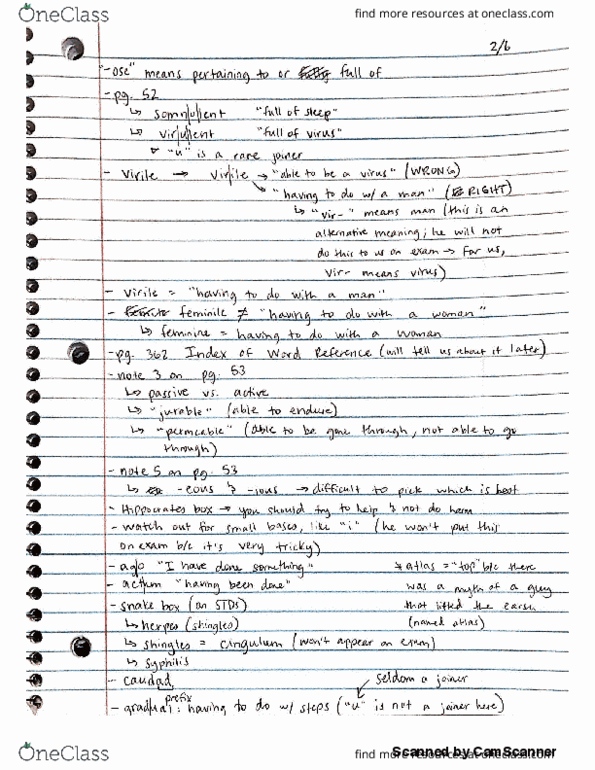 OneClass
find more resources at oneclass.com
2/6
"-ose" means pertaining to or full of
- pg. 52
↳ somn/u/lent "full of sleep"
↳ vir/u/lent "full of virus"
"u" is a rare joiner
- virile → vir/ile → "able to be a virus" (WRONG)
"having to do w/ a man" (RIGHT)
↳ "vir-" means man (this is an
alternative meaning; he will not
do this to us on exam → for us,
vir- means virus)
- virile = "having to do with a man"
- feminile ≠ "having to do with a woman"
↳ feminine = having to do with a woman
- pg. 362 Index of Word Reference (will tell us about it later)
- note 3 on pg. 53
↳ passive vs. active
↳ "jurable" (able to endure)
↳ "permeable" (able to be gone through, not able to go
through)
- note 5 on pg. 53
↳ -eous & -ious → difficult to pick which is best
- Hippocrates box → you should try to help & not do harm
- watch out for small bases, like "i" (he won't put this
on exam b/c it's very tricky)
- ago "I have done something"
- actum "having been done"
- snake box (on STDs)
↳ herpes (shingles)
↳ shingles = cingulum (won't appear on exam)
↳ syphilis
* atlas = "top" b/c there
was a myth of a guy
that lifted the earth
(named atlas)
- caudad
prefix
seldom a joiner
- gradual: having to do w/ steps ("u" is not a joiner here)
OneClass
find more resources at oneclass.com
Scanned by CamScanner